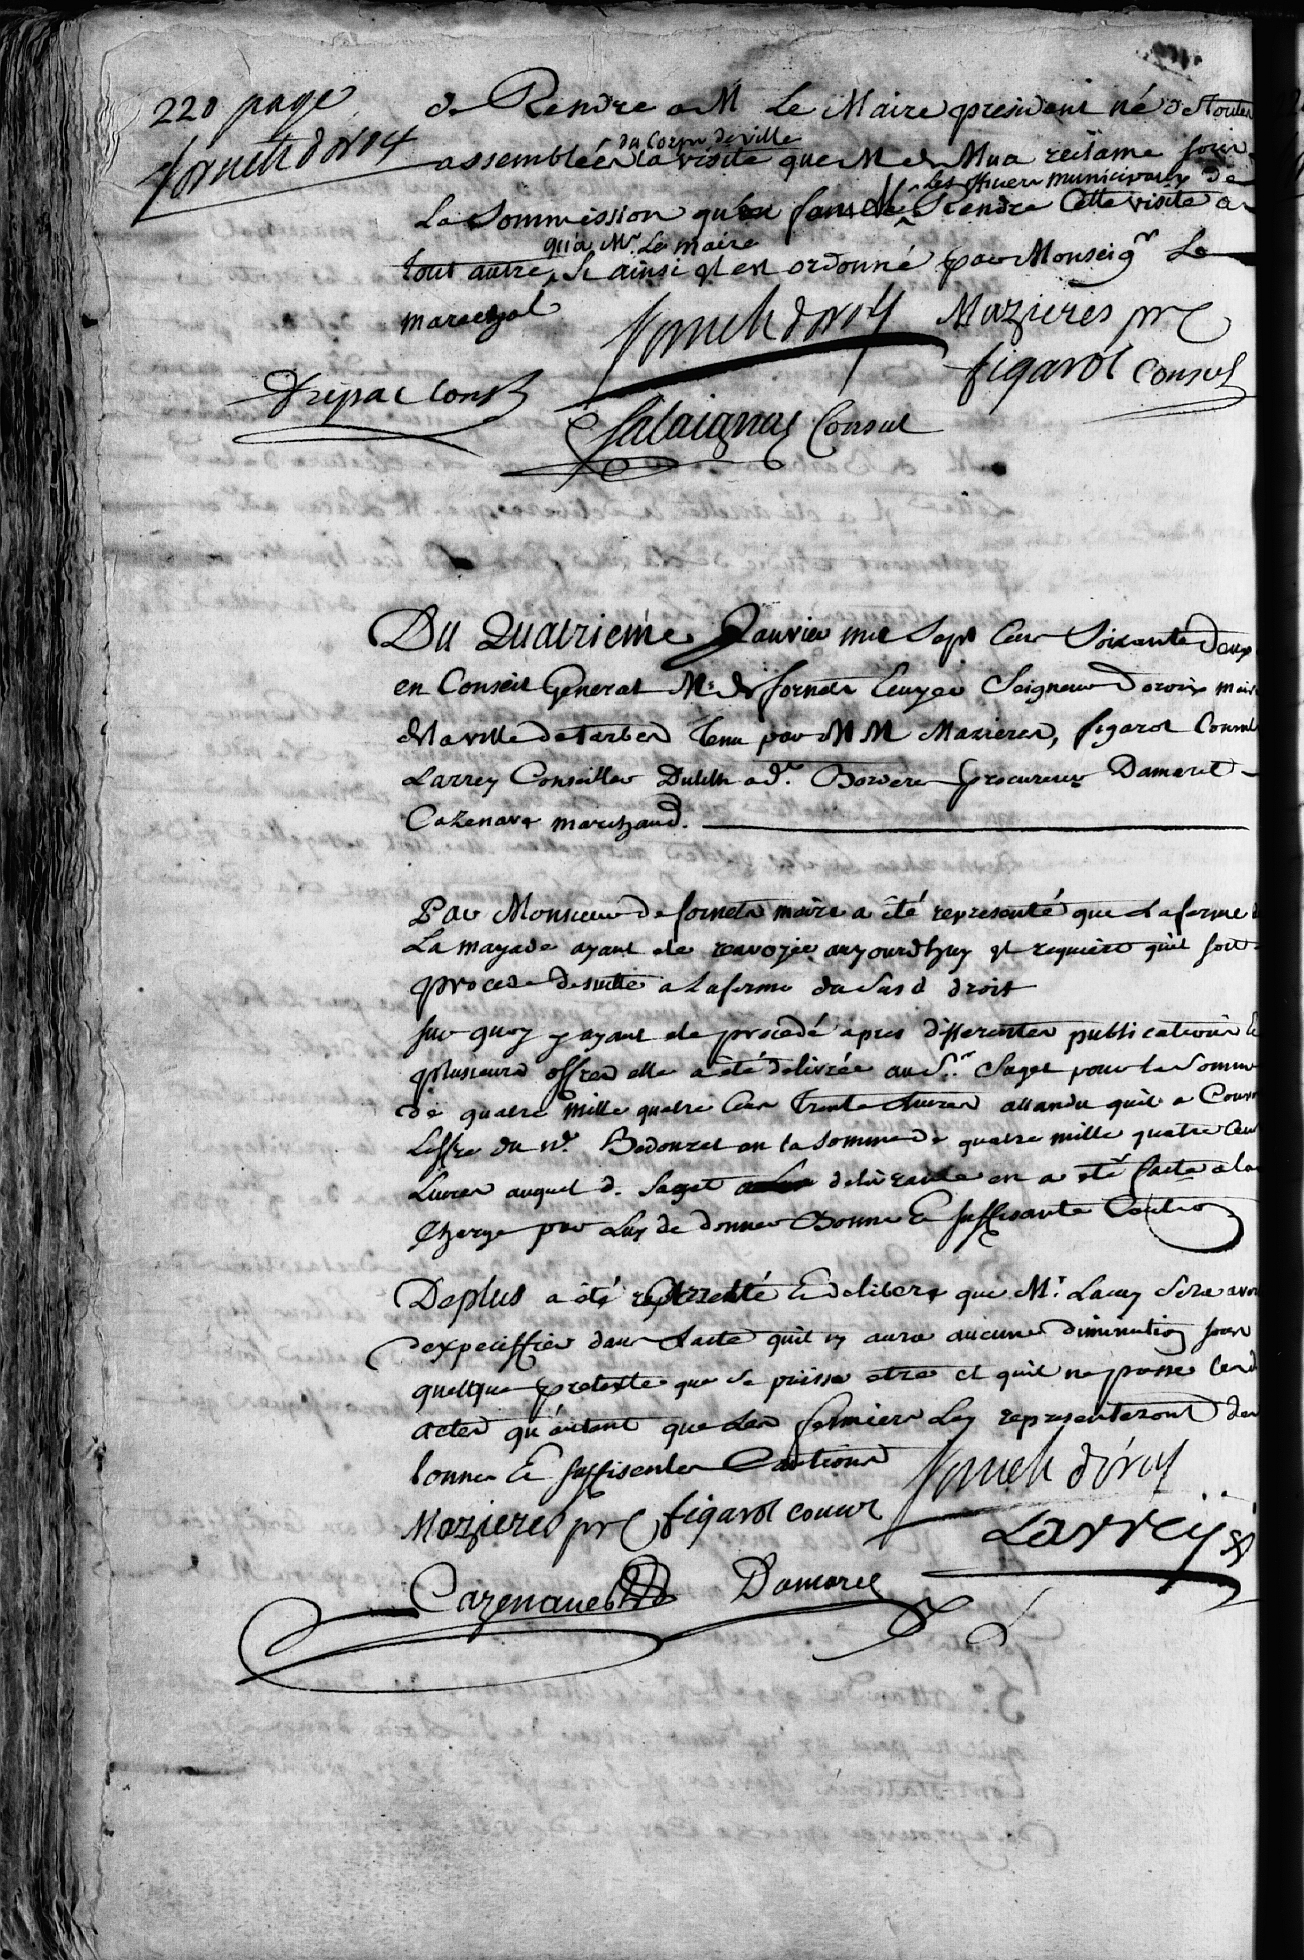 220 page
fornets doroix
de Rendre a M Le Maire president né de toutes
assemblées du Corps de ville la visite que M de Mua reclame sous
La Sommission qu'on fait Les officiers municipaux de Rendre Cette visite a
tout autre qu'a Mr. Le maire, Si ainsi il est ordonné par Monseigr Le
marechal
fornets doroix Mazieres pr C
figarol Consul
Drepac Consul
salaignac Consul
Du Quatrieme Janvier mil Sept Cens Soixante Deux
en Conseil General Mr. de fornets Ecuyer Seigneur doroix maire
de la ville de Tarbes Tenu par MM Mazieres, figarol Consuls
Larrey Conseiller Dulth ad.t Bordere procureur Damaret
Cazenave marchand.
Par Monsieur de fornets maire a été representé que La ferme de
La mayade ayant ete renvoyée aujourdhuy il requiert quil soit
procede desuitte a La ferme du Susd droit
sur quoy y ayant ete procedé apres differentes publications Et
plusieurs offres elle a été delivrée au Sr. Saget pour La Somme
de quatre mille quatre Cens Trente Livres attandu quil a Couvert
Loffre du nd. Bedouret en la Somme de quatre mille quatre Cens
Livres auquel d. Saget delivrance en a eté faite a la
Charge par Luy de donner Bonne Et suffisante Caution
Deplus a été representé Et deliberé que Mr. Lacay Sera averti
dexpeciffier dans Lacte quil ny aura aucune diminution sous
quelque pretexte que Ce puisse etre et quil ne passe Lesd
actes qu'autant que Les fermiers Luy representeront des
bonnes Et suffisentes Cautions
fornets doroix
Mazieres pr C figarol consul
Larrey
Cazenave Damaret